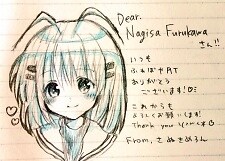 Dear.
Nagisa Furukawa
さん!!
いつも
ふぁぼやRT
ありがとう
ございます!
これからも
よろしくお願いします!
Thank you
From, さぬきめろん